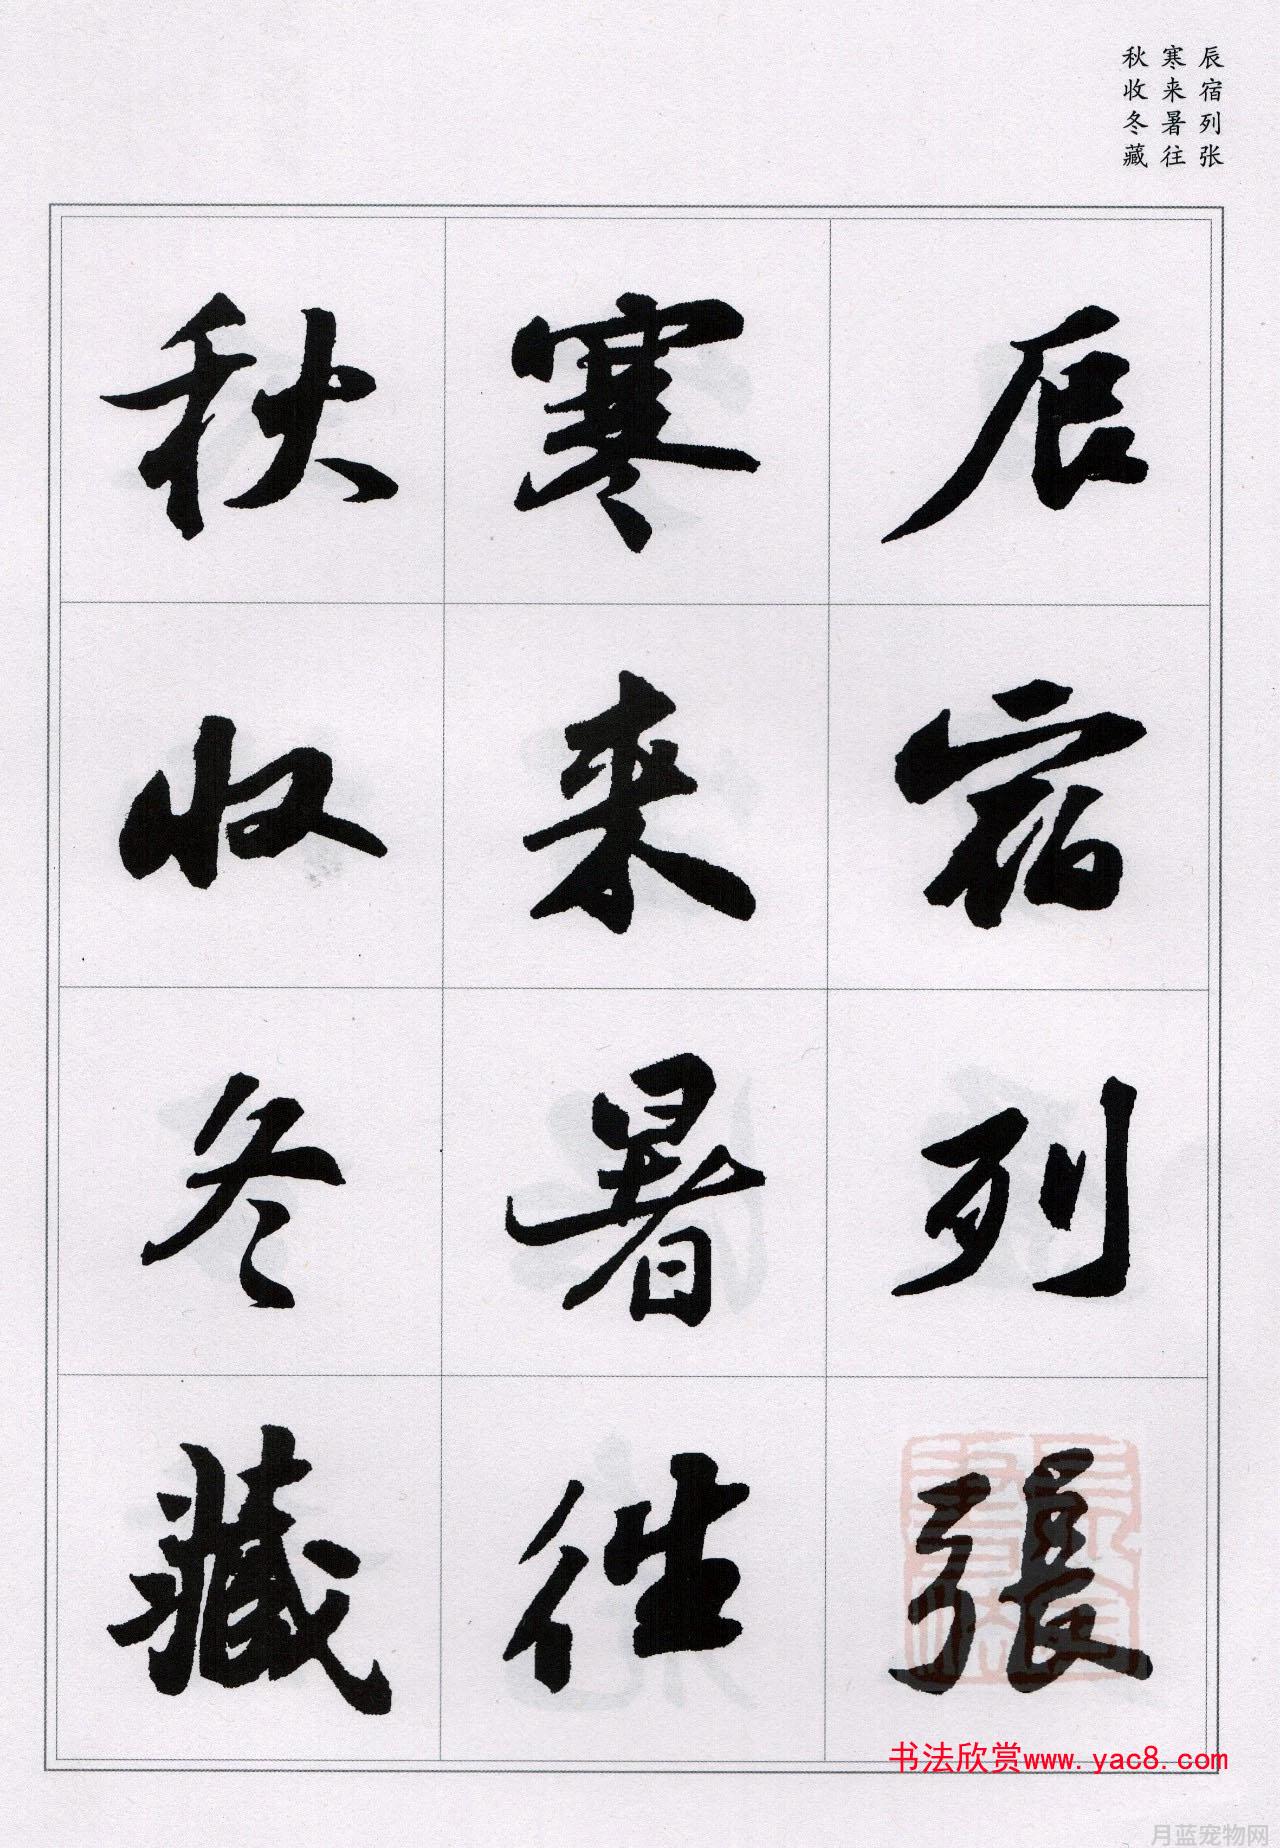 辰宿列张
寒来暑往
秋收冬藏
辰宿列張
寒来暑往
秋收冬藏
书法欣赏www.yac8.com
月蓝宠物网